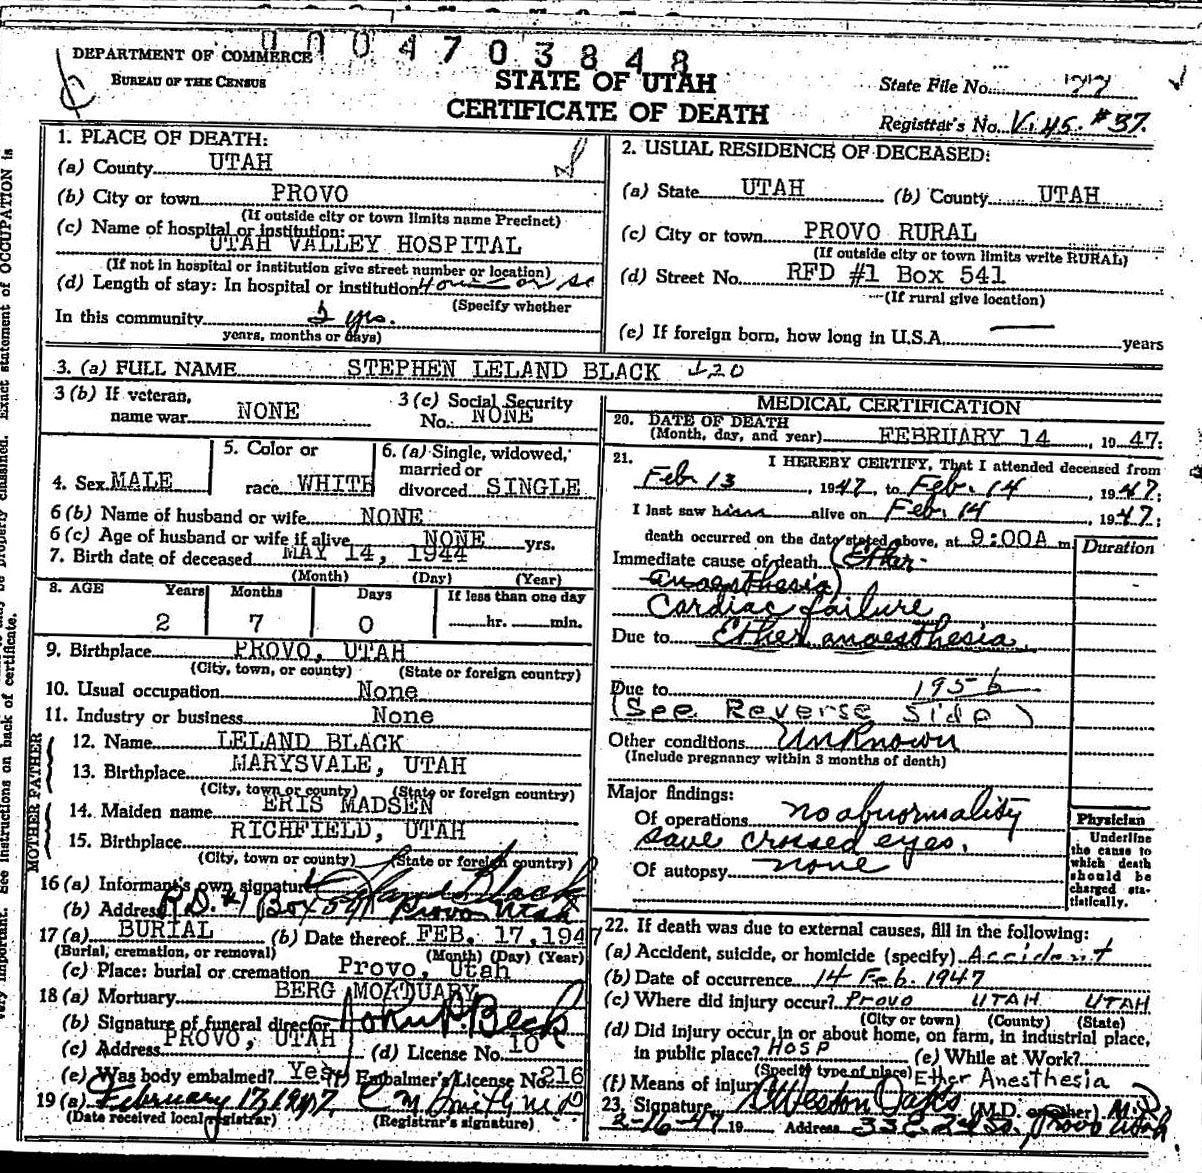 004703848
DEPARTMENT OF COMMERCE
BUREAU OF THE CENSUS
STATE OF UTAH
CERTIFICATE OF DEATH
State File No.
Registrar's No. V.45. #37.
1. PLACE OF DEATH:
(a) County UTAH
(b) City or town PROVO
(If outside city or town limits name Precinct)
(c) Name of hospital or institution:
UTAH VALLEY HOSPITAL
(If not in hospital or institution give street number or location)
(d) Length of stay: In hospital or institution
(Specify whether
In this community yrs.
years, months or days)
2. USUAL RESIDENCE OF DECEASED:
(a) State UTAH (b) County UTAH
(c) City or town PROVO RURAL
(If outside city or town limits write RURAL)
(d) Street No. RFD #1 Box 541
(If rural give location)
(e) If foreign born, how long in U.S.A. — years
3. (a) FULL NAME STEPHEN LELAND BLACK 120
3 (b) If veteran,
name war NONE
3 (c) Social Security
No. NONE
4. Sex MALE
5. Color or
race WHITE
6. (a) Single, widowed,
married or
divorced SINGLE
6 (b) Name of husband or wife NONE
6 (c) Age of husband or wife if alive NONE yrs.
7. Birth date of deceased MAY 14, 1944
(Month) (Day) (Year)
8. AGE Years Months Days If less than one day
2 7 0 hr. min.
9. Birthplace PROVO, UTAH
(City, town, or county) (State or foreign country)
10. Usual occupation None
11. Industry or business None
FATHER
12. Name LELAND BLACK
13. Birthplace MARYSVALE, UTAH
(City, town or county) (State or foreign country)
MOTHER
14. Maiden name ERIS MADSEN
15. Birthplace RICHFIELD, UTAH
(City, town or county) (State or foreign country)
16 (a) Informant's own signature Leland Black
(b) Address R.D. #1 Box 541 Provo Utah
17 (a) BURIAL (b) Date thereof FEB. 17, 1947
(Burial, cremation, or removal) (Month) (Day) (Year)
(c) Place: burial or cremation Provo, Utah
18 (a) Mortuary BERG MORTUARY
(b) Signature of funeral director
(c) Address PROVO, UTAH (d) License No. 10
(e) Was body embalmed? Yes (f) Embalmer's License No. 216
19 (a) February 17, 1947
(Date received local registrar) (Registrar's signature)
MEDICAL CERTIFICATION
20. DATE OF DEATH
(Month, day, and year) FEBRUARY 14, 1947.
21. I HEREBY CERTIFY, That I attended deceased from
Feb. 13, 1947, to Feb. 14, 1947;
I last saw him alive on Feb. 14, 1947;
death occurred on the date stated above, at 9:00A m
Duration
Immediate cause of death (Ether
anaesthesia)
Cardiac failure
Due to Ether anaesthesia
Due to 195 b
(See Reverse side)
Other conditions Unknown
(Include pregnancy within 3 months of death)
Major findings:
Of operations no abnormality
save crossed eyes.
Of autopsy none
Physician
Underline
the cause to
which death
should be
charged sta-
tistically.
22. If death was due to external causes, fill in the following:
(a) Accident, suicide, or homicide (specify) Accident
(b) Date of occurrence 14 Feb. 1947
(c) Where did injury occur? Provo UTAH UTAH
(City or town) (County) (State)
(d) Did injury occur in or about home, on farm, in industrial place,
in public place? HOSP (e) While at Work?
(Specify type of place)
(f) Means of injury Ether Anesthesia
23. Signature Weston Oaks (M.D. or other) M.D.
2-16-47 19 Address Provo Utah